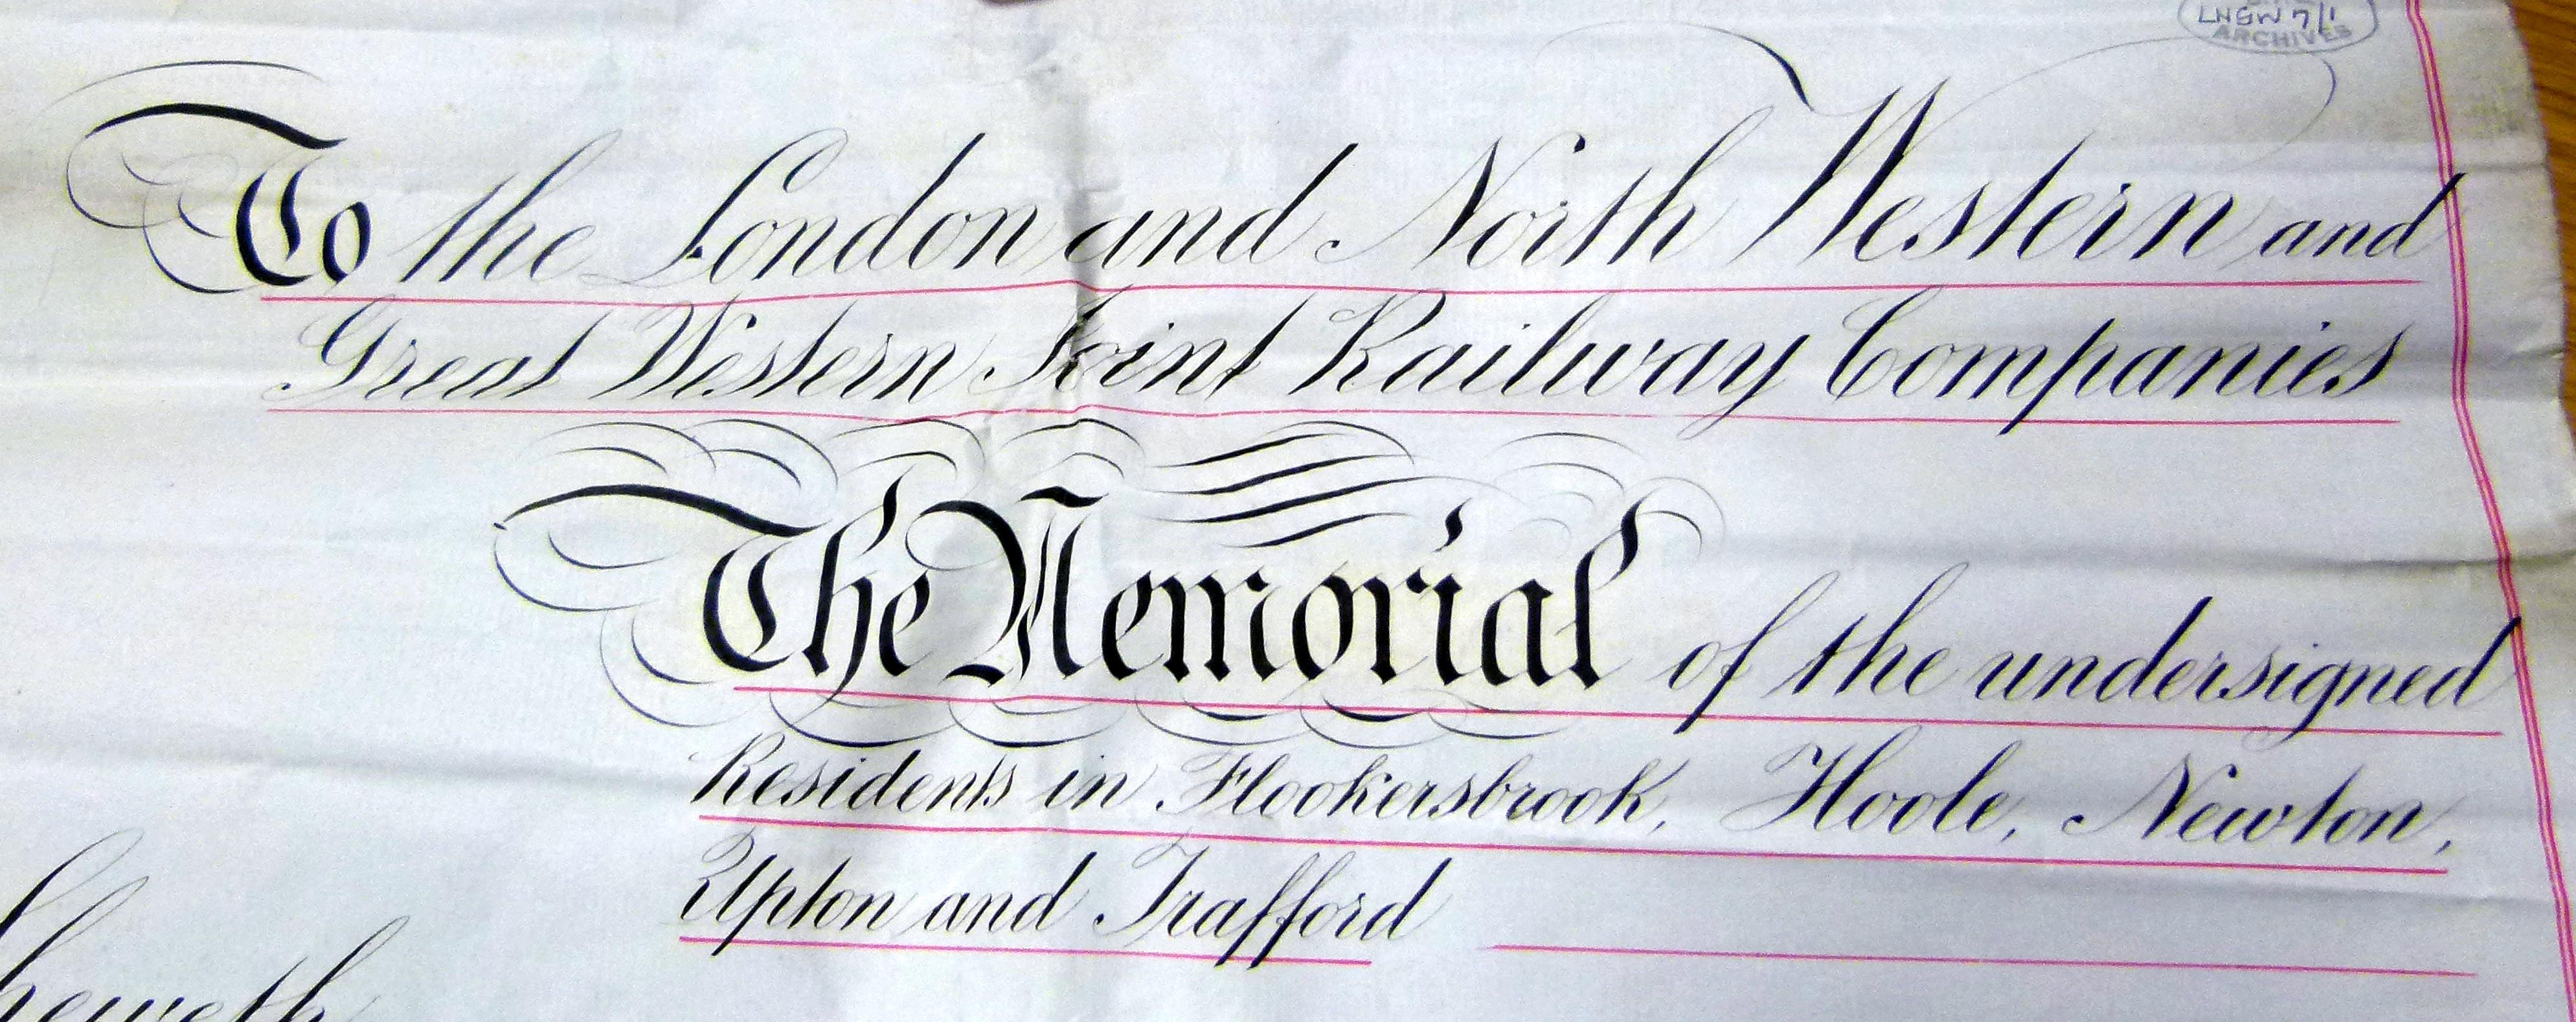 LNGW 7/1
ARCHIVES
To the London and North Western and
Great Western Joint Railway Companies
The Memorial of the undersigned
Residents in Flookersbrook, Hoole, Newton,
Upton and Trafford
heweth